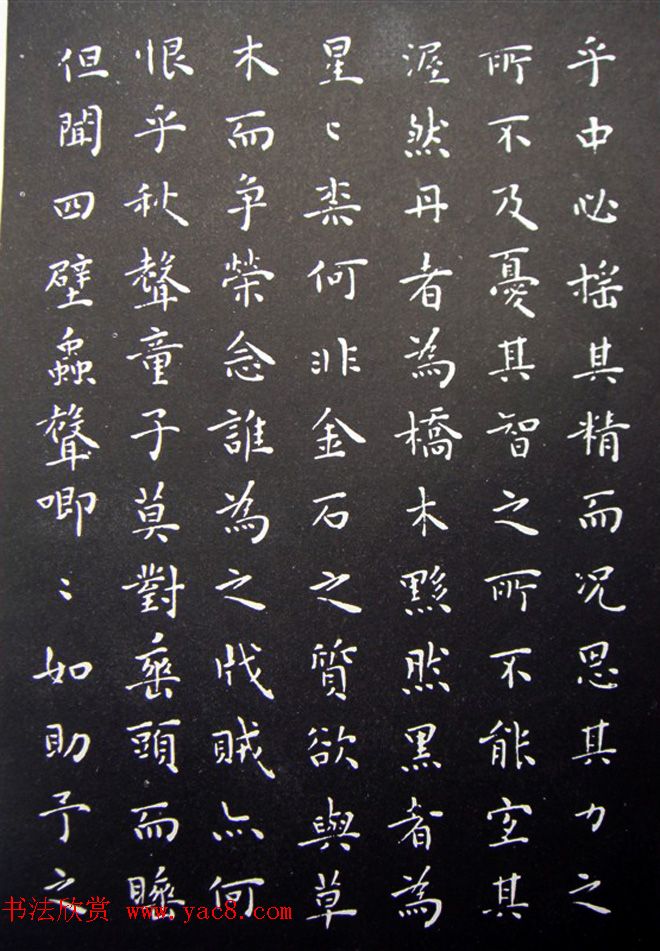 乎中必揺其精而况思其力之
所不及憂其智之所不能宐其
渥然丹者為槗木黟然黒者為
星〻柰何非金石之質欲與草
木而争榮念誰為之戕賊亦何
恨乎秋聲童子莫對垂頭而睡
但聞四壁蟲聲唧〻如助予之
书法欣赏 www.yac8.com